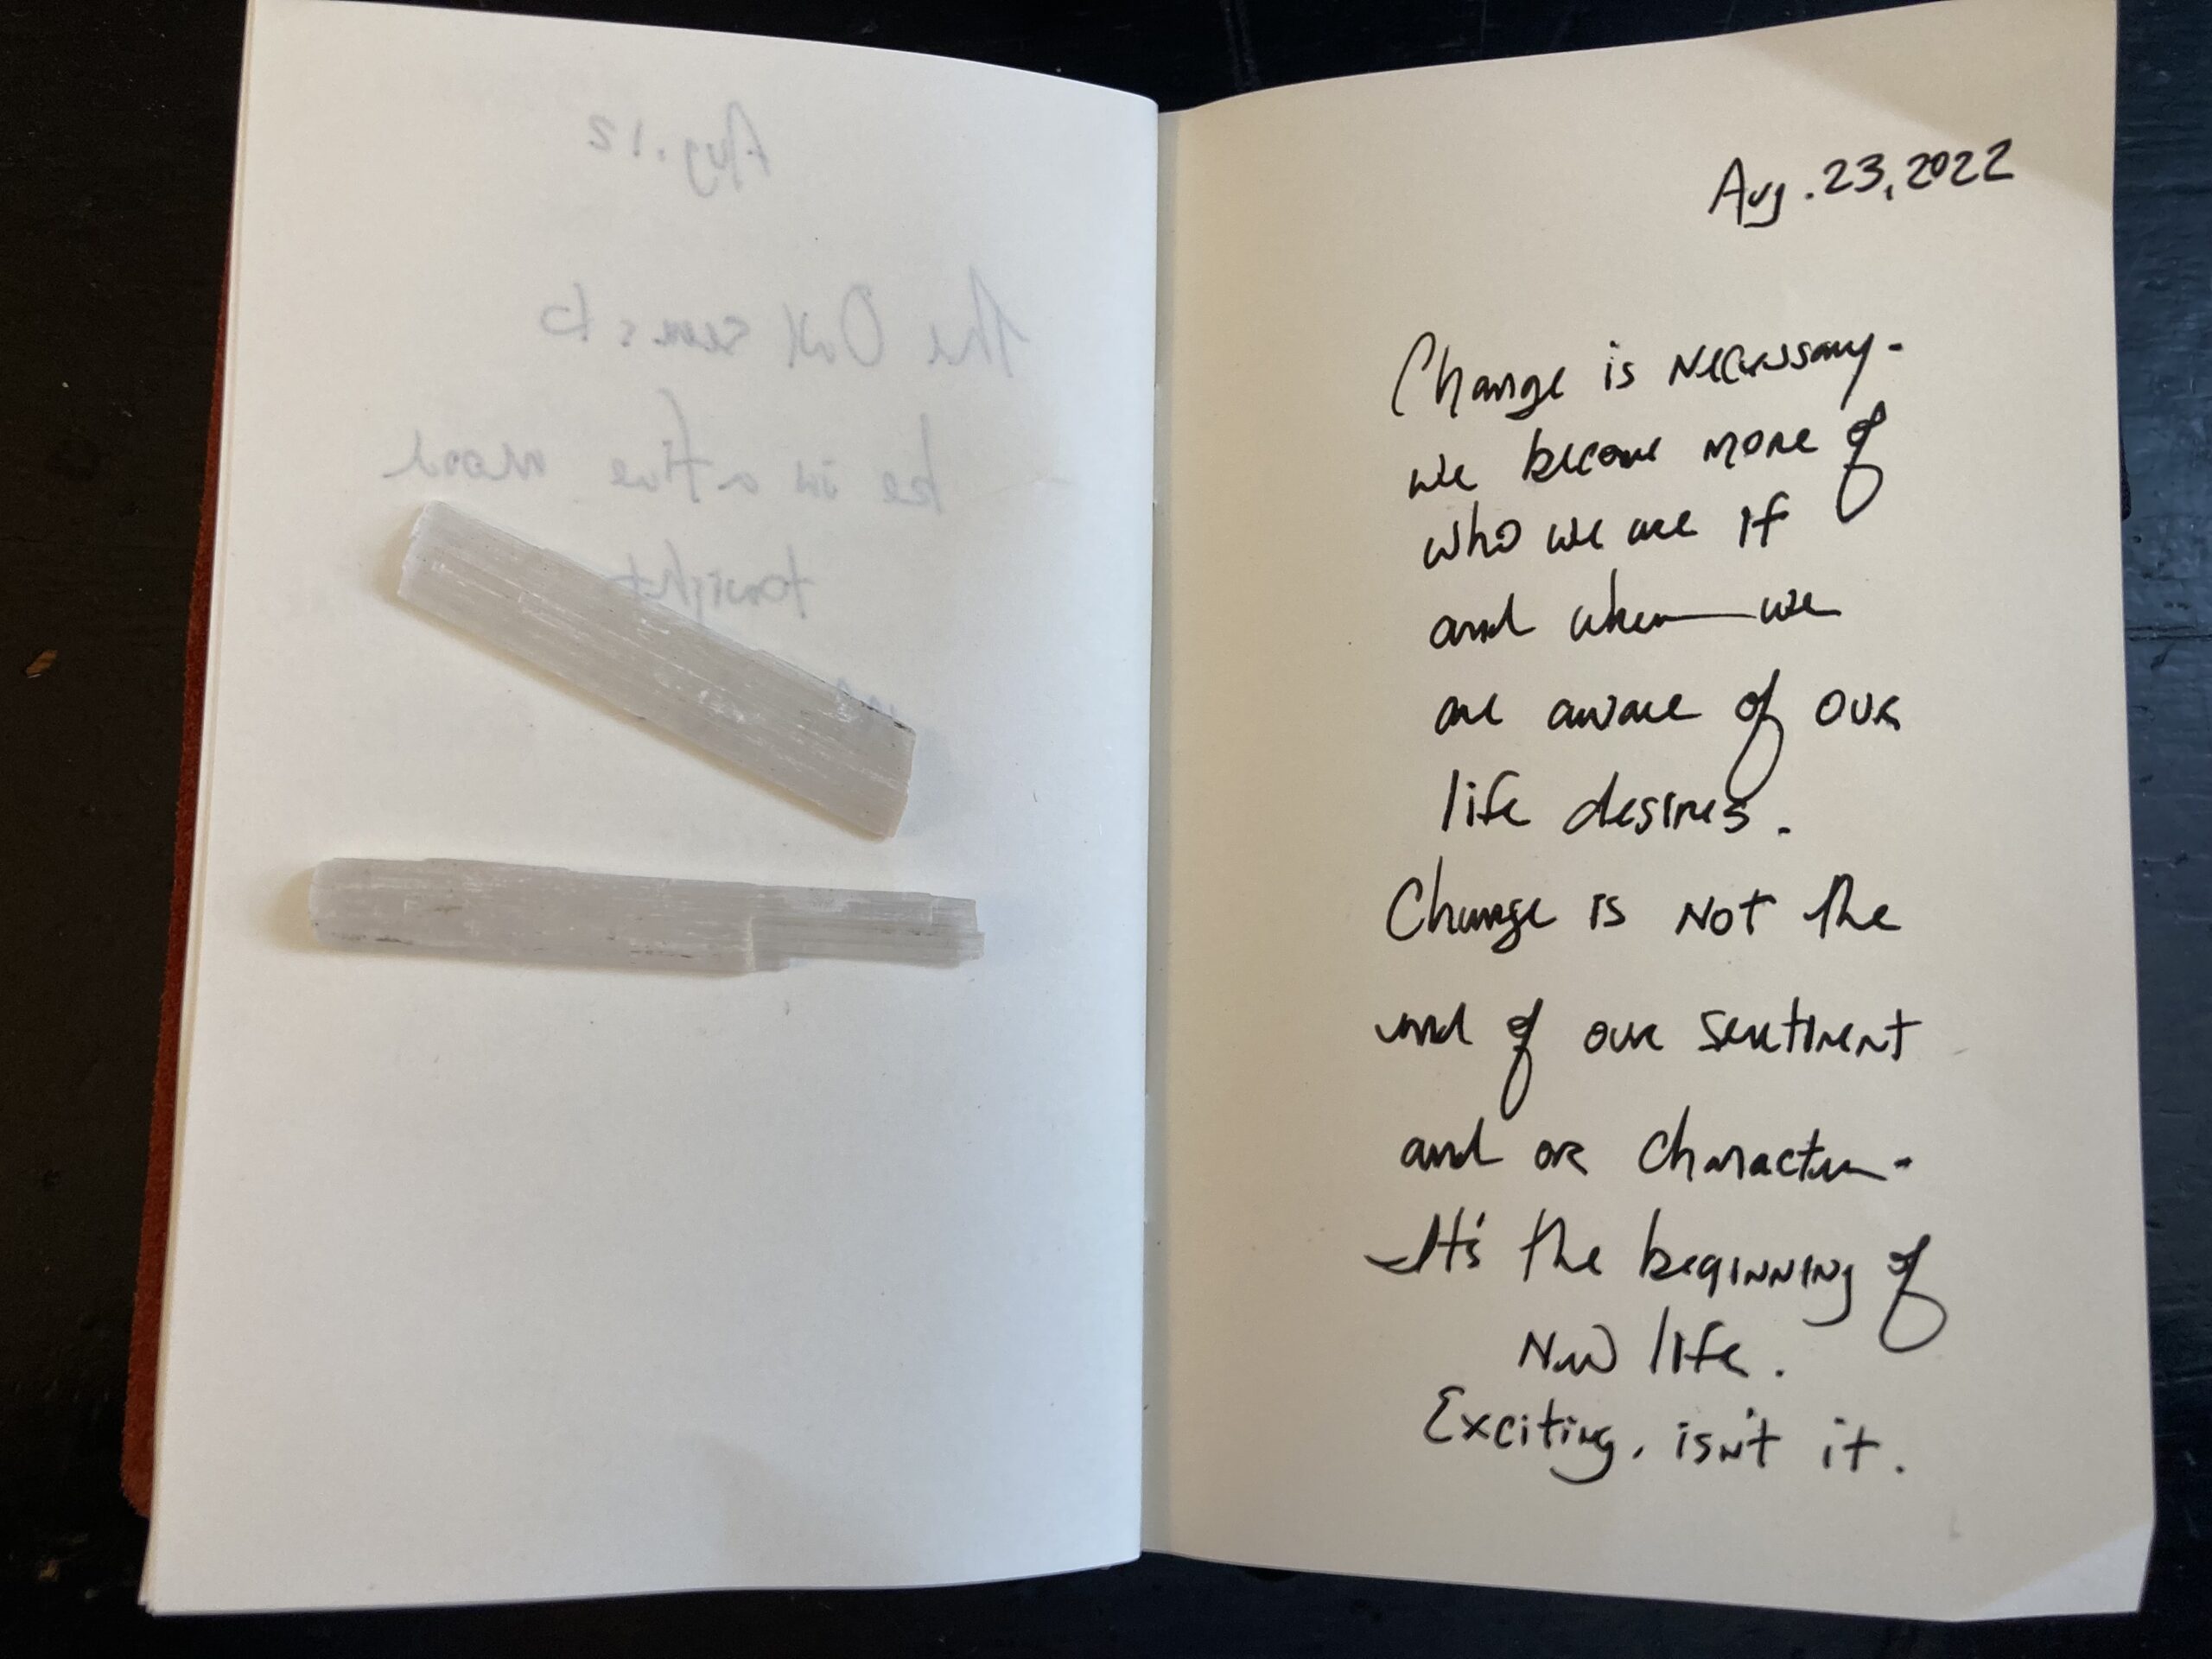 Aug. 12
The Owl seems to
be in a fine mood
tonight
Aug. 23, 2022
Change is necessary.
we become more of
who we are if
and when we
are aware of our
life desires.
Change is not the
end of our sentiment
and or character.
It's the beginning of
New life.
Exciting, isn't it.